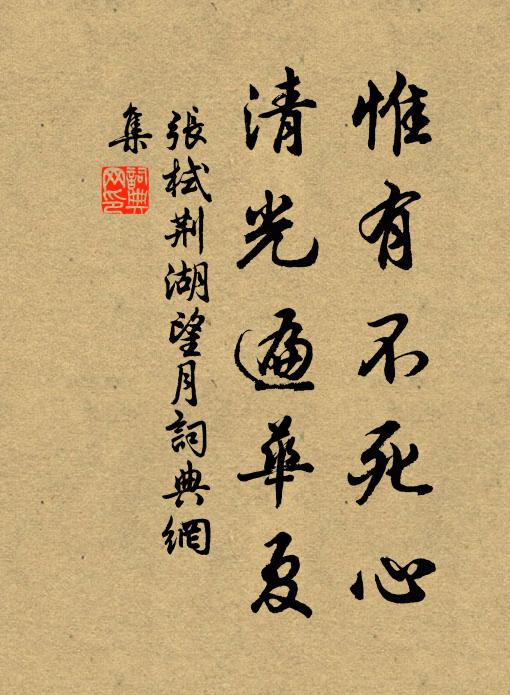 惟有不死心
清光遍華夏
張栻荆湖望月詞典網
集
詞典
网印